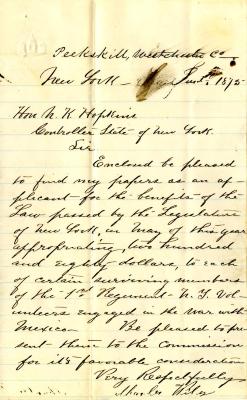 Peekskill, Westchester Co
New York — June 1875
Hon N. K. Hopkins
Controller State of New York.
Sir
Enclosed be pleased
to find my papers as an ap-
plicant for the benefits of the
Law passed by the Legislature
of New York, in May of this year
appropriating, two hundred
and eighty dollars, to each
of certain surviving members
of the 1st Regiment N. Y. Vol-
unteers engaged in the war with
Mexico Be pleased to pre
sent them to the Commission
for its favorable consideration
Very Respectfully
Charles